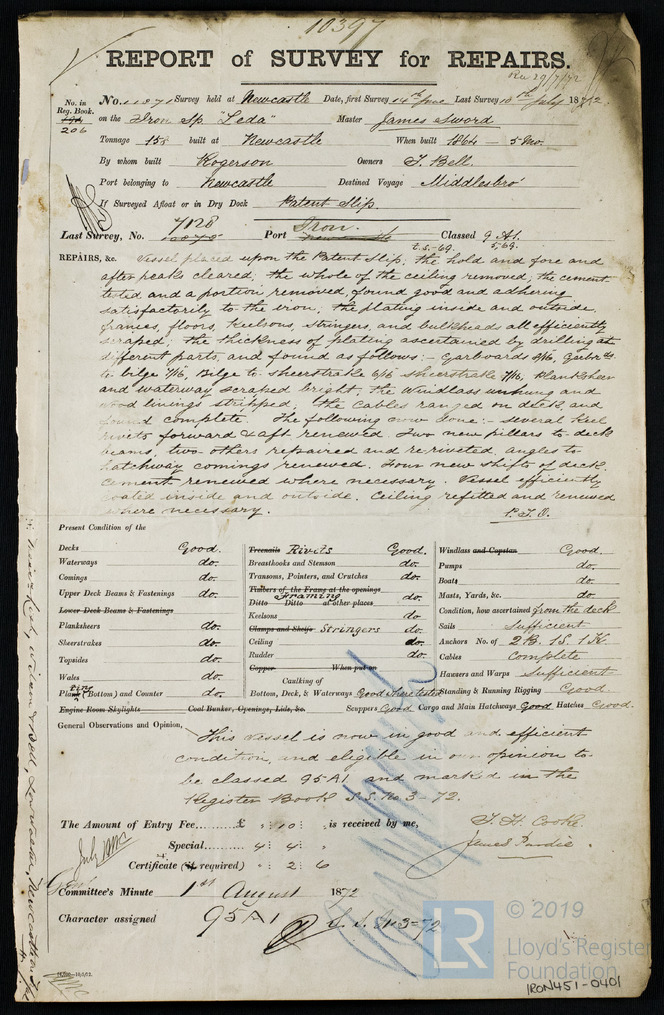 10397
REPORT of SURVEY for REPAIRS.
Rec 29/7/72
No. in Reg. Book. 206
No. 11871 Survey held at Newcastle Date, first Survey 14th June Last Survey 10th July 1872
on the Iron Sp. "Leda" Master James Sword
Tonnage 158 built at Newcastle When built 1864 - 5 Mo.
By whom built Rogerson Owners T. Bell.
Port belonging to Newcastle Destined Voyage Middlesbro'
If Surveyed Afloat or in Dry Dock Patent Slip
Last Survey, No. 7128 Port Iron. Classed 9 A1.
t.s.-69. 5,69.
REPAIRS, &c. Vessel placed upon the Patent Slip, the hold and fore and
after peaks cleared, the whole of the ceiling removed, the cement
tested and a portion removed, found good and adhering
satisfactorily to the iron, the plating inside and outside
frames, floors, keelsons, stringers, and bulkheads all efficiently
scraped; the thickness of plating ascertained by drilling at
different parts, and found as follows:- Garboards 8/16, Garbrds
to bilge 7/16, Bilge to sheerstrake 6/16 sheerstrake 7/16, Planksheer
and waterway scraped bright, the windlass unhung and
wood linings stripped, the cables ranged on deck, and
found complete. The following now done:- Several keel
rivets forward & aft renewed. Two new pillars to deck
beams, two others repaired and re-riveted, angles to
hatchway comings renewed. Four new shifts of deck,
cement renewed where necessary. Vessel efficiently
coated inside and outside. Ceiling refitted and renewed
where necessary. P.T.O.
Present Condition of the
Decks Good.
Waterways do.
Comings do.
Upper Deck Beams & Fastenings do.
Lower Deck Beams & Fastenings
Planksheers do.
Sheerstrakes do.
Topsides do.
Wales do.
Plating (Bottom) and Counter do.
Engine Room Skylights Coal Bunker, Openings, Lids, &c.
Treenails Rivits Good.
Breasthooks and Stemson do.
Transoms, Pointers, and Crutches do.
Timbers of the Frame at the openings
Framing do.
Ditto Ditto at other places
Keelsons do
Clamps and Shelfs Stringers do.
Ceiling do.
Rudder do.
Copper When put on
Caulking of
Bottom, Deck, & Waterways Good where tested
Scuppers Good Cargo and Main Hatchways Good Hatches Good.
Windlass and Capstan Good.
Pumps do.
Boats do.
Masts, Yards, &c. do.
Condition, how ascertained from the deck
Sails Sufficient
Anchors No. of 2 B. 1 S. 1 K.
Cables Complete
Hawsers and Warps Sufficient
Standing & Running Rigging Good
General Observations and Opinion,
This vessel is now in good and efficient
condition, and eligible in our opinion to
be classed 95 A1 and marked in the
Register Book S.S. No. 3-72.
The Amount of Entry Fee.........£ " : 10 : " is received by me,
Special..... 4 : 4 : "
Certificate (if required) " : 2 : 6
T. H. Cooke
James Purdie
Committee's Minute 1st August 1872
Character assigned 95 A1
S.S. No 3-72
© 2019
LR
Lloyd's Register
Foundation
IRON451-0401